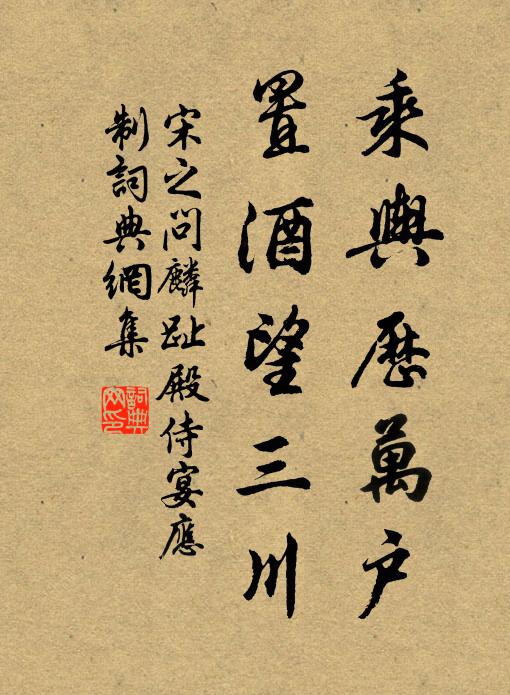 乘輿歷萬户
置酒望三川
宋之問麟趾殿侍宴應
制詞典網集
詞典網印